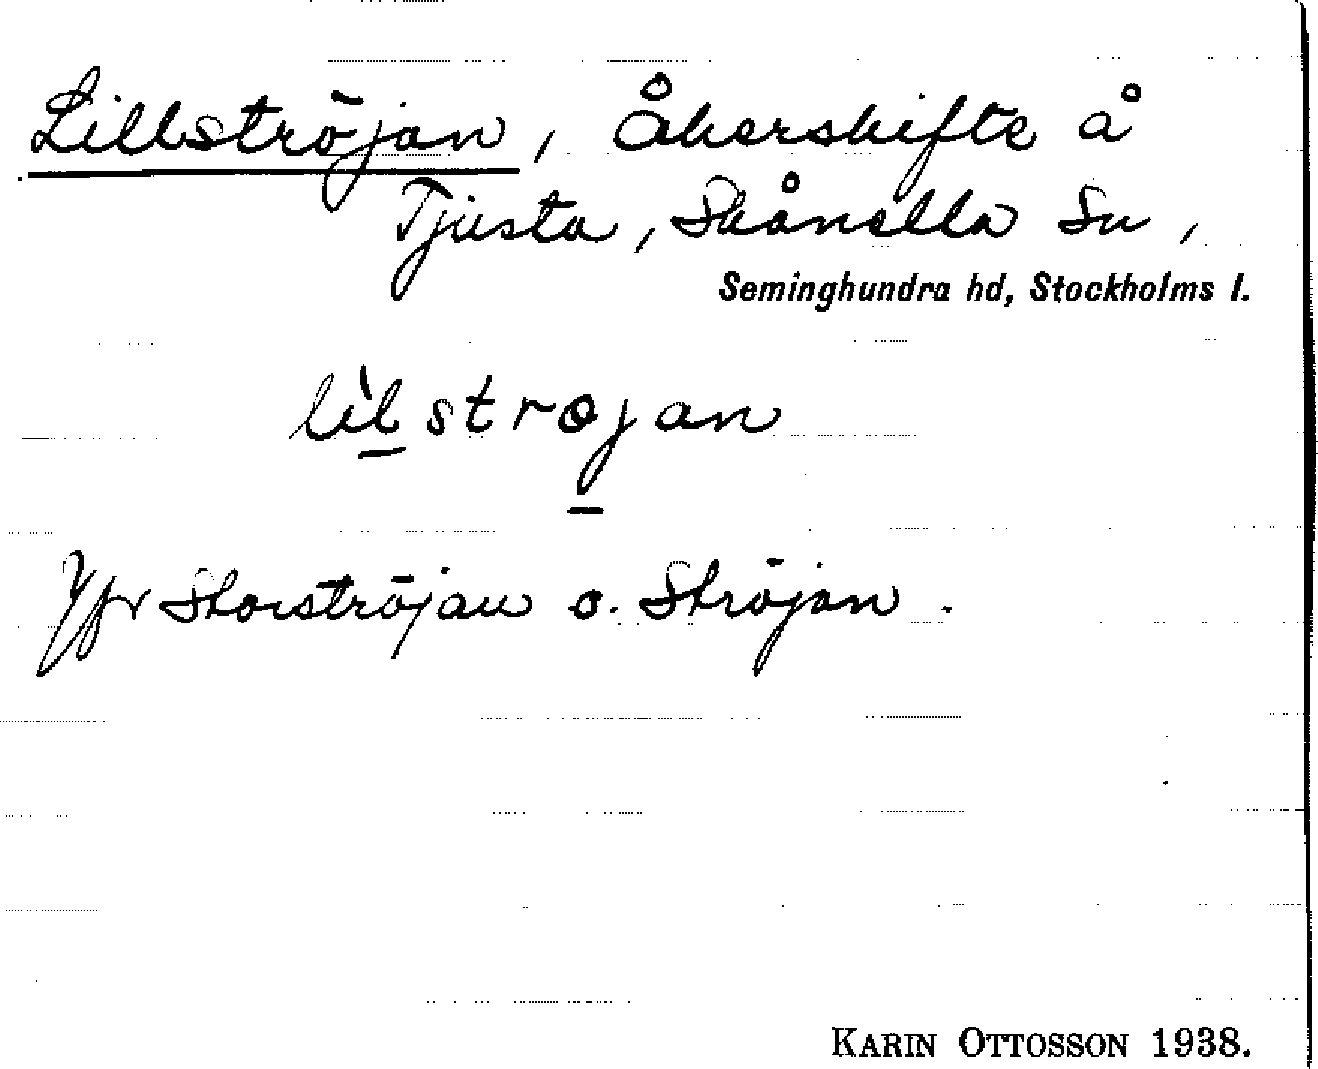 Lillströjan, Åkerskifte å
Tjusta, Skånella Sn,
Seminghundra hd, Stockholms l.
lil̀strøjan
Jfr Storströjan o. Ströjan.
KARIN OTTOSSON 1938.